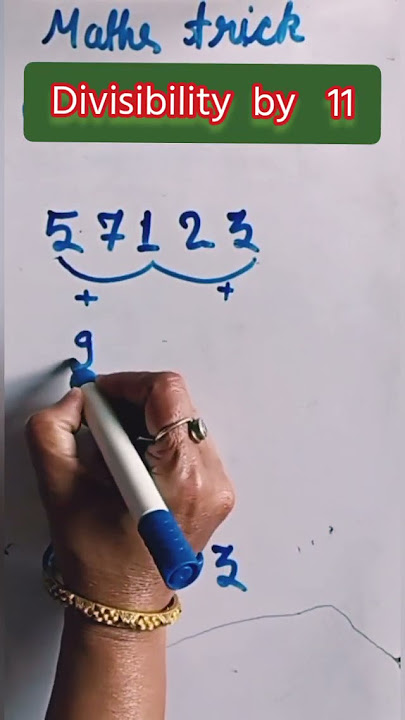 Maths trick
Divisibility by 11
5 7 1 2 3
+ +
9
3